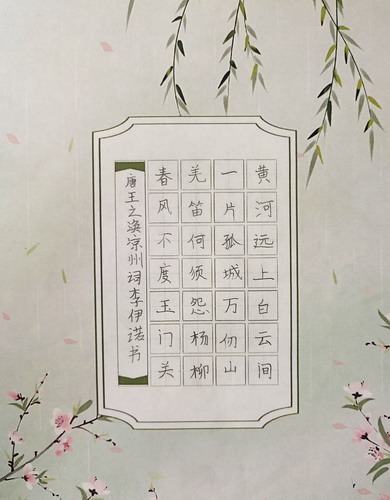 黄河远上白云间
一片孤城万仞山
羌笛何须怨杨柳
春风不度玉门关
唐王之涣凉州词李伊诺书